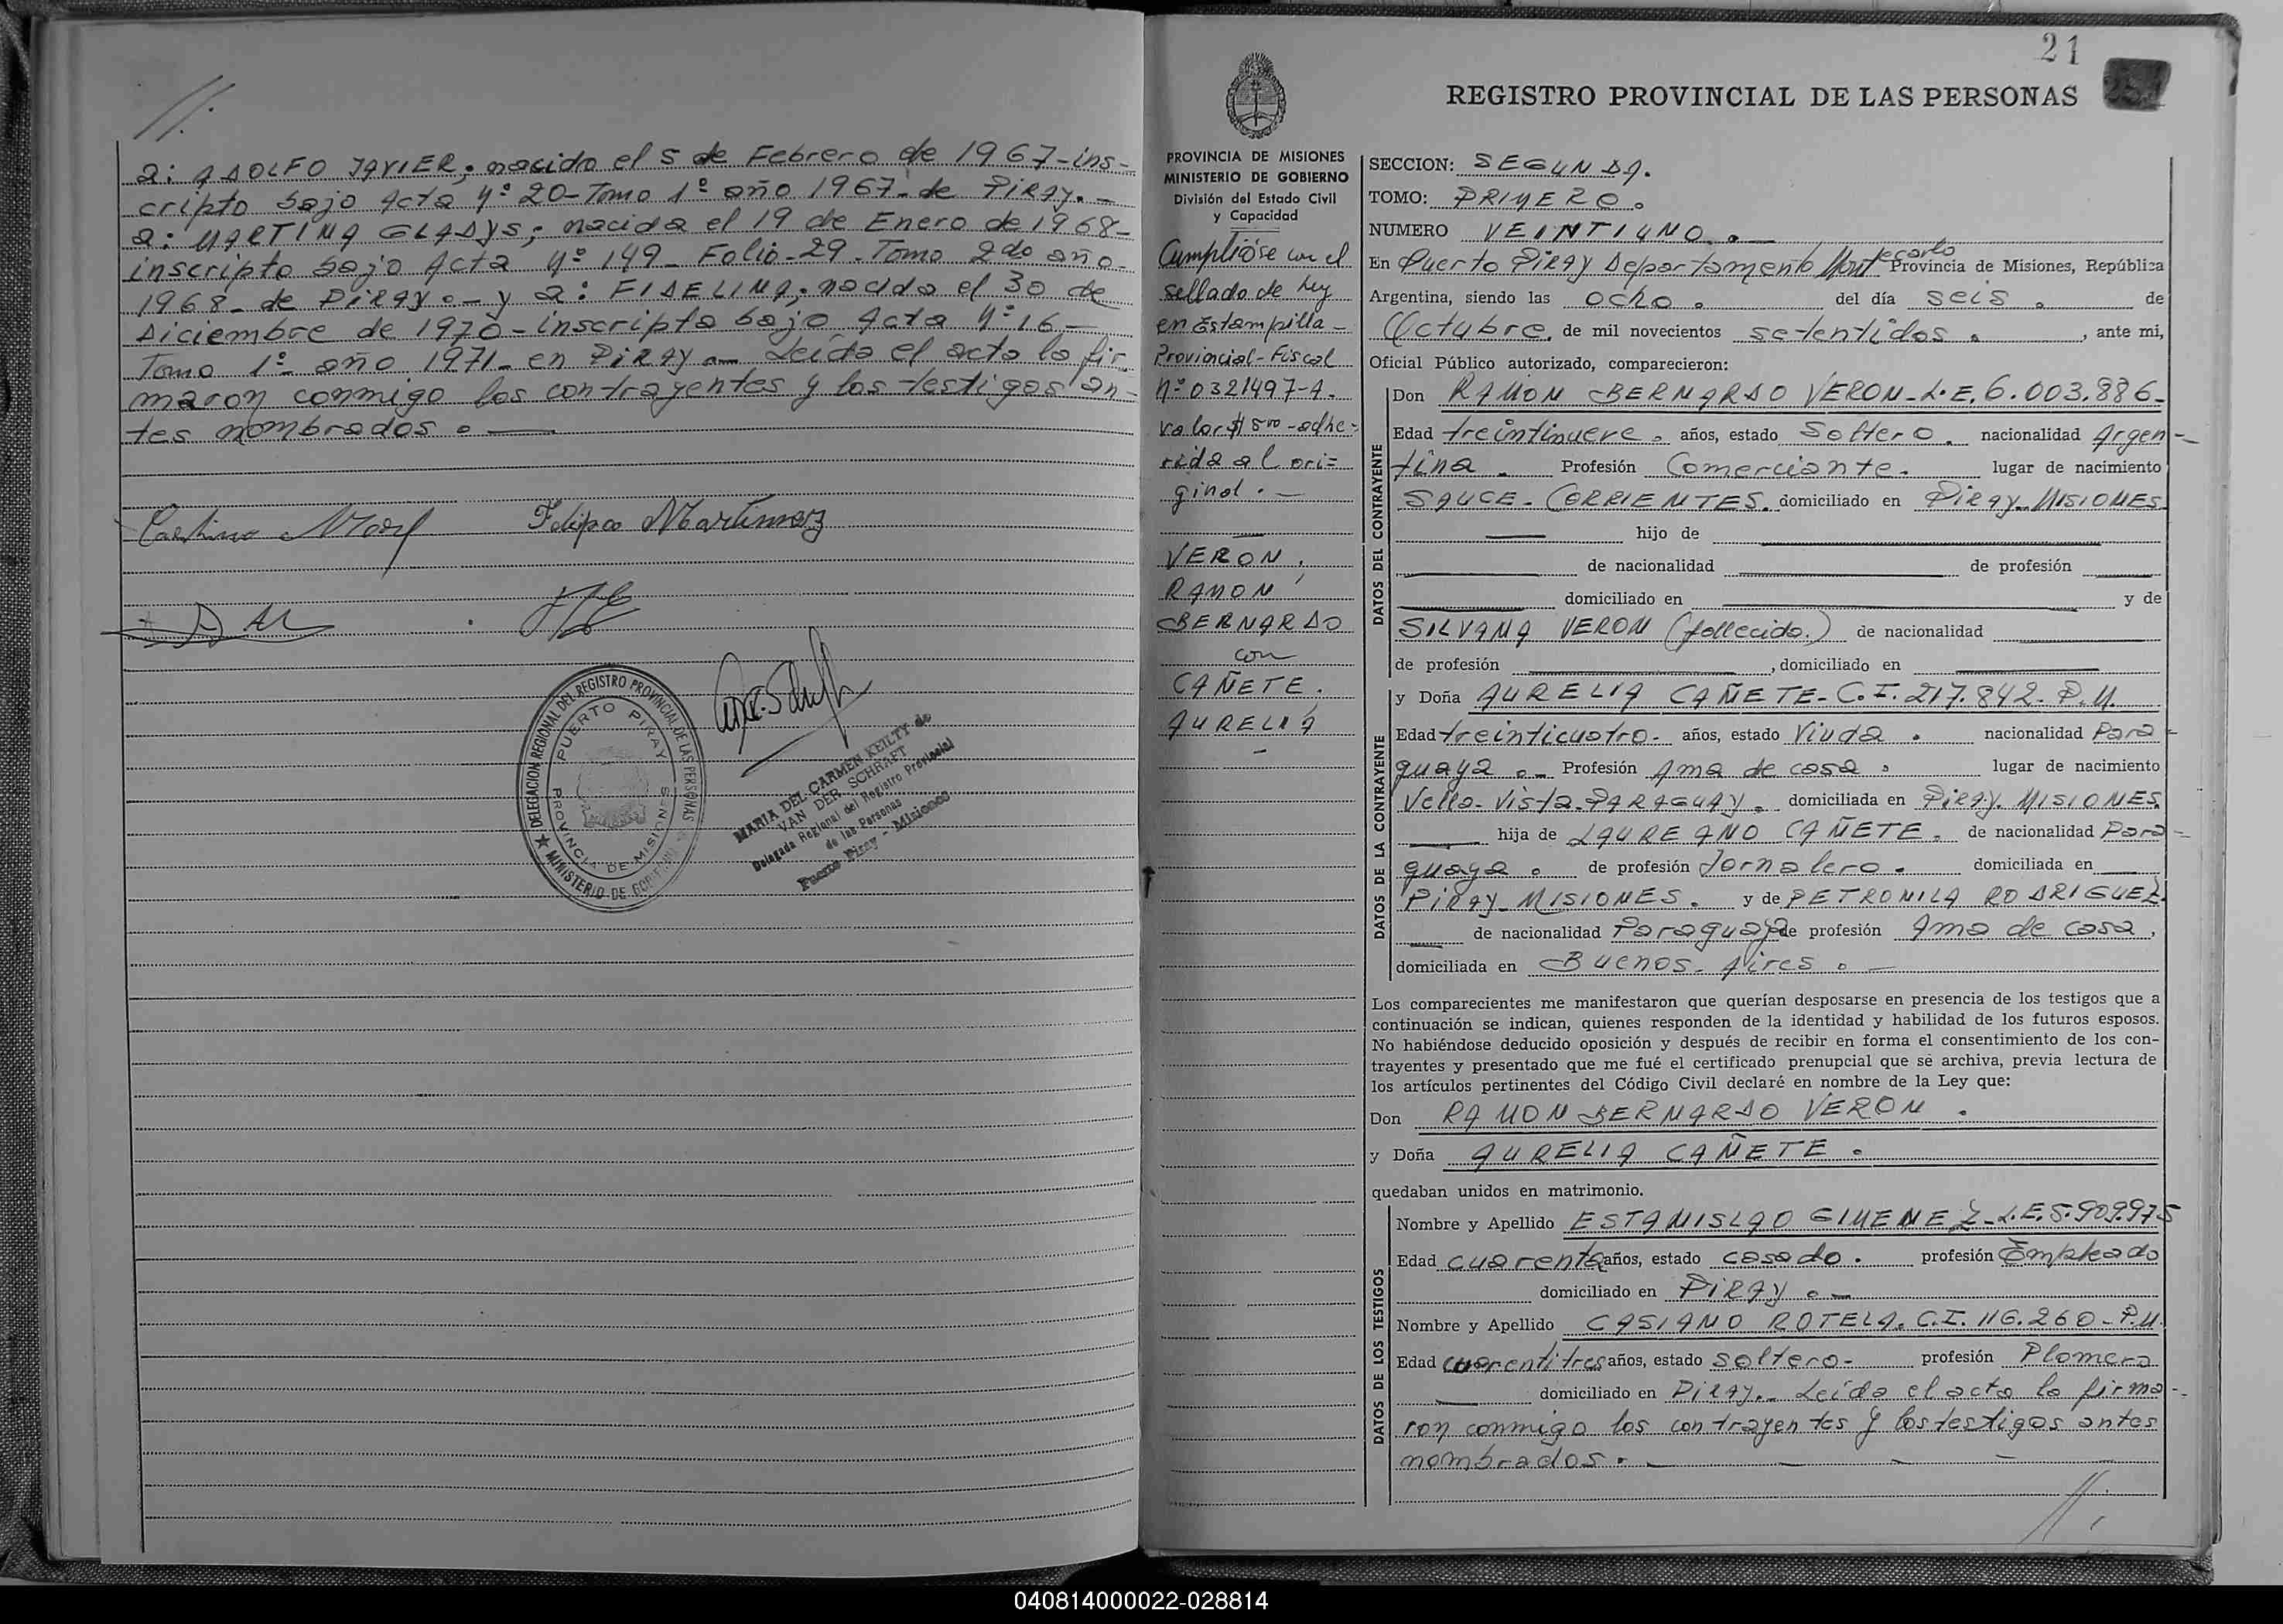 //.
a: ADOLFO JAVIER; nacido el 5 de Febrero de 1967-ins-
cripto bajo Acta Nº 20-Tomo 1º año 1967-de PiRAY.-
a: MARTINA GLADYS; nacida el 19 de Enero de 1968-
inscripta bajo Acta Nº 149- Folio-29-Tomo 2do año-
1968-de PiRAY.- y a: FIDELINA; nacida el 30 de
Diciembre de 1970-inscripta bajo Acta Nº 16-
Tomo 1º año 1971-en PiRAY.- Leída el acta la fir-
maron conmigo los contrayentes y los testigos an-
tes nombrados.-
Felipa Martinez
DELEGACION REGIONAL DEL REGISTRO PROVINCIAL DE LAS PERSONAS
MINISTERIO DE GOBIERNO
PUERTO PIRAY
PROVINCIA DE MISIONES
MARIA DEL CARMEN KEILTY de
VAN DER SCHRAFT
Delegada Regional del Registro Provincial
de las Personas
Puerto Piray - Misiones
21
REGISTRO PROVINCIAL DE LAS PERSONAS
PROVINCIA DE MISIONES
MINISTERIO DE GOBIERNO
División del Estado Civil
y Capacidad
Cumplióse con el
sellado de ley
en Estampilla-
Provincial-Fiscal
Nº 0321497-A.
valor $ 500-adhe-
rida al ori-
ginal.-
VERON,
RAMON
BERNARDO
con
CAÑETE.
AURELIA
-
SECCION: SEGUNDA.
TOMO: PRIMERO.
NUMERO VEINTIUNO.-
En Puerto PiRAY Departamento Montecarlo Provincia de Misiones, República
Argentina, siendo las ocho. del día seis. de
Octubre. de mil novecientos setentidos. , ante mi,
Oficial Público autorizado, comparecieron:
DATOS DEL CONTRAYENTE
Don RAMON BERNARDO VERON-L.E. 6.003.886-
Edad treintinueve. años, estado Soltero. nacionalidad Argen-
tina. Profesión Comerciante. lugar de nacimiento
SAUCE-CORRIENTES. domiciliado en PiRAY-MISIONES
hijo de
de nacionalidad de profesión
domiciliado en y de
SILVANA VERON (fallecida.) de nacionalidad
de profesión , domiciliado en
DATOS DE LA CONTRAYENTE
y Doña AURELIA CAÑETE-C.I. 217.842-P.M.
Edad treinticuatro- años, estado Viuda. nacionalidad Para-
guaya.- Profesión Ama de casa. lugar de nacimiento
Vella-Vista-PARAGUAY. domiciliada en PiRAY-MISIONES.
hija de LAUREANO CAÑETE. de nacionalidad Para-
guaya. de profesión Jornalero. domiciliada en
PiRAY-MISIONES. y de PETRONILA RODRIGUEZ.
de nacionalidad Paraguaya de profesión Ama de casa.
domiciliada en Buenos-Aires.-
Los comparecientes me manifestaron que querían desposarse en presencia de los testigos que a
continuación se indican, quienes responden de la identidad y habilidad de los futuros esposos.
No habiéndose deducido oposición y después de recibir en forma el consentimiento de los con-
trayentes y presentado que me fué el certificado prenupcial que se archiva, previa lectura de
los artículos pertinentes del Código Civil declaré en nombre de la Ley que:
Don RAMON BERNARDO VERON.
y Doña AURELIA CAÑETE.
quedaban unidos en matrimonio.
DATOS DE LOS TESTIGOS
Nombre y Apellido ESTANISLAO GIMENEZ-L.E. 5.909.975
Edad cuarenta años, estado casado. profesión Empleado
domiciliado en PiRAY.-
Nombre y Apellido CASIANO ROTELA. C.I. 116.260-P.M.
Edad cuarentitres años, estado soltero- profesión Plomero
domiciliado en PiRAY.- Leída el acta la firma-
ron conmigo los contrayentes y los testigos antes
nombrados.-
//.
040814000022-028814